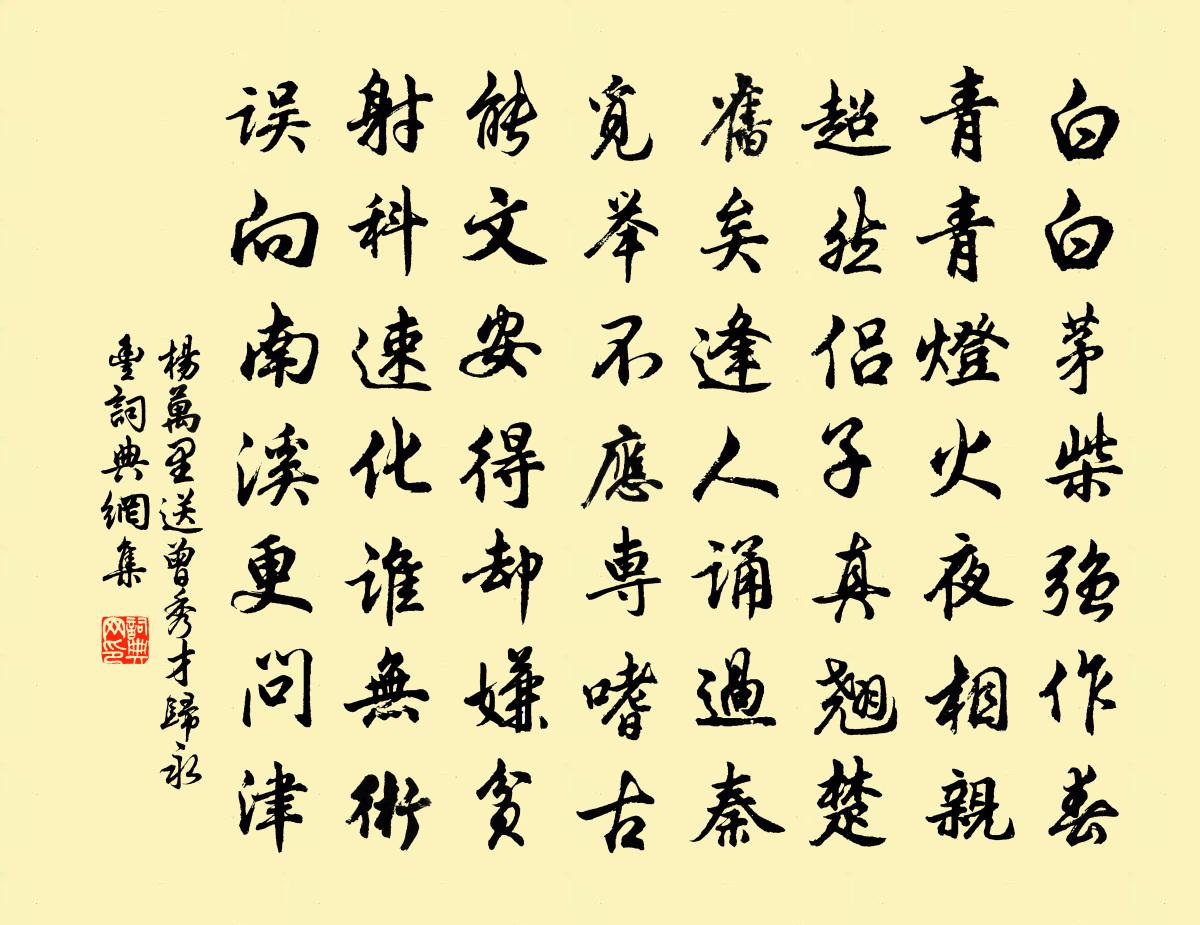 白白茅柴强作春
青青燈火夜相親
超然侣子真翘楚
舊矣逢人诵過秦
覓举不應専嗜古
能文安得却嫌貧
射科速化谁無術
误向南溪更问津
楊萬里送曾秀才歸永
豊詞典網集
詞典网印